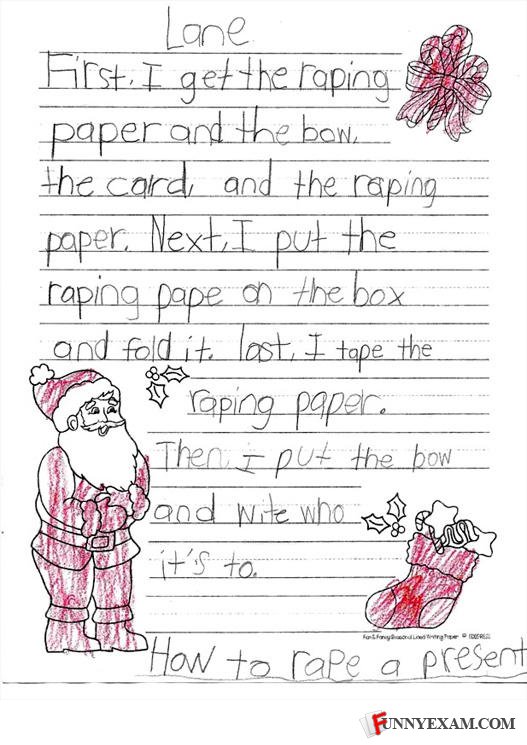 Lane
First, I get the raping
paper and the bow,
the card, and the raping
paper. Next, I put the
raping pape on the box
and fold it. last, I tape the
raping paper.
Then I put the bow
and wite who
it's to.
Fun & Fancy Seasonal Lined Writing Paper ©
How to rape a present
FUNNYEXAM.COM